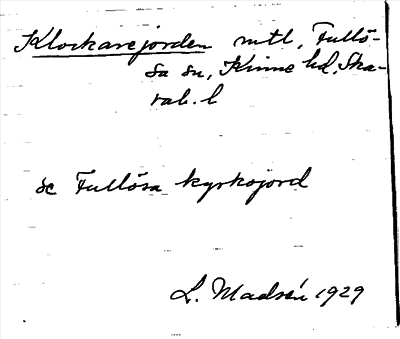 Klockarejorden mtl, Fullö-
sa sn, Kinne hd, Ska-
rab. l
se Fullösa kyrkojord
L. Madsén 1929